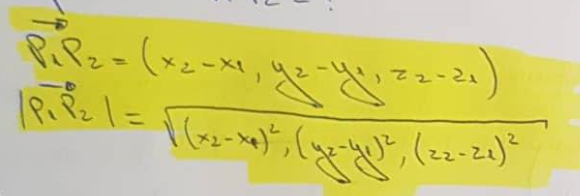 P₁P₂ = (x₂-x₁, y₂-y₁, z₂-z₁)
|P₁P₂| = √(x₂-x₁)², (y₂-y₁)², (z₂-z₁)²